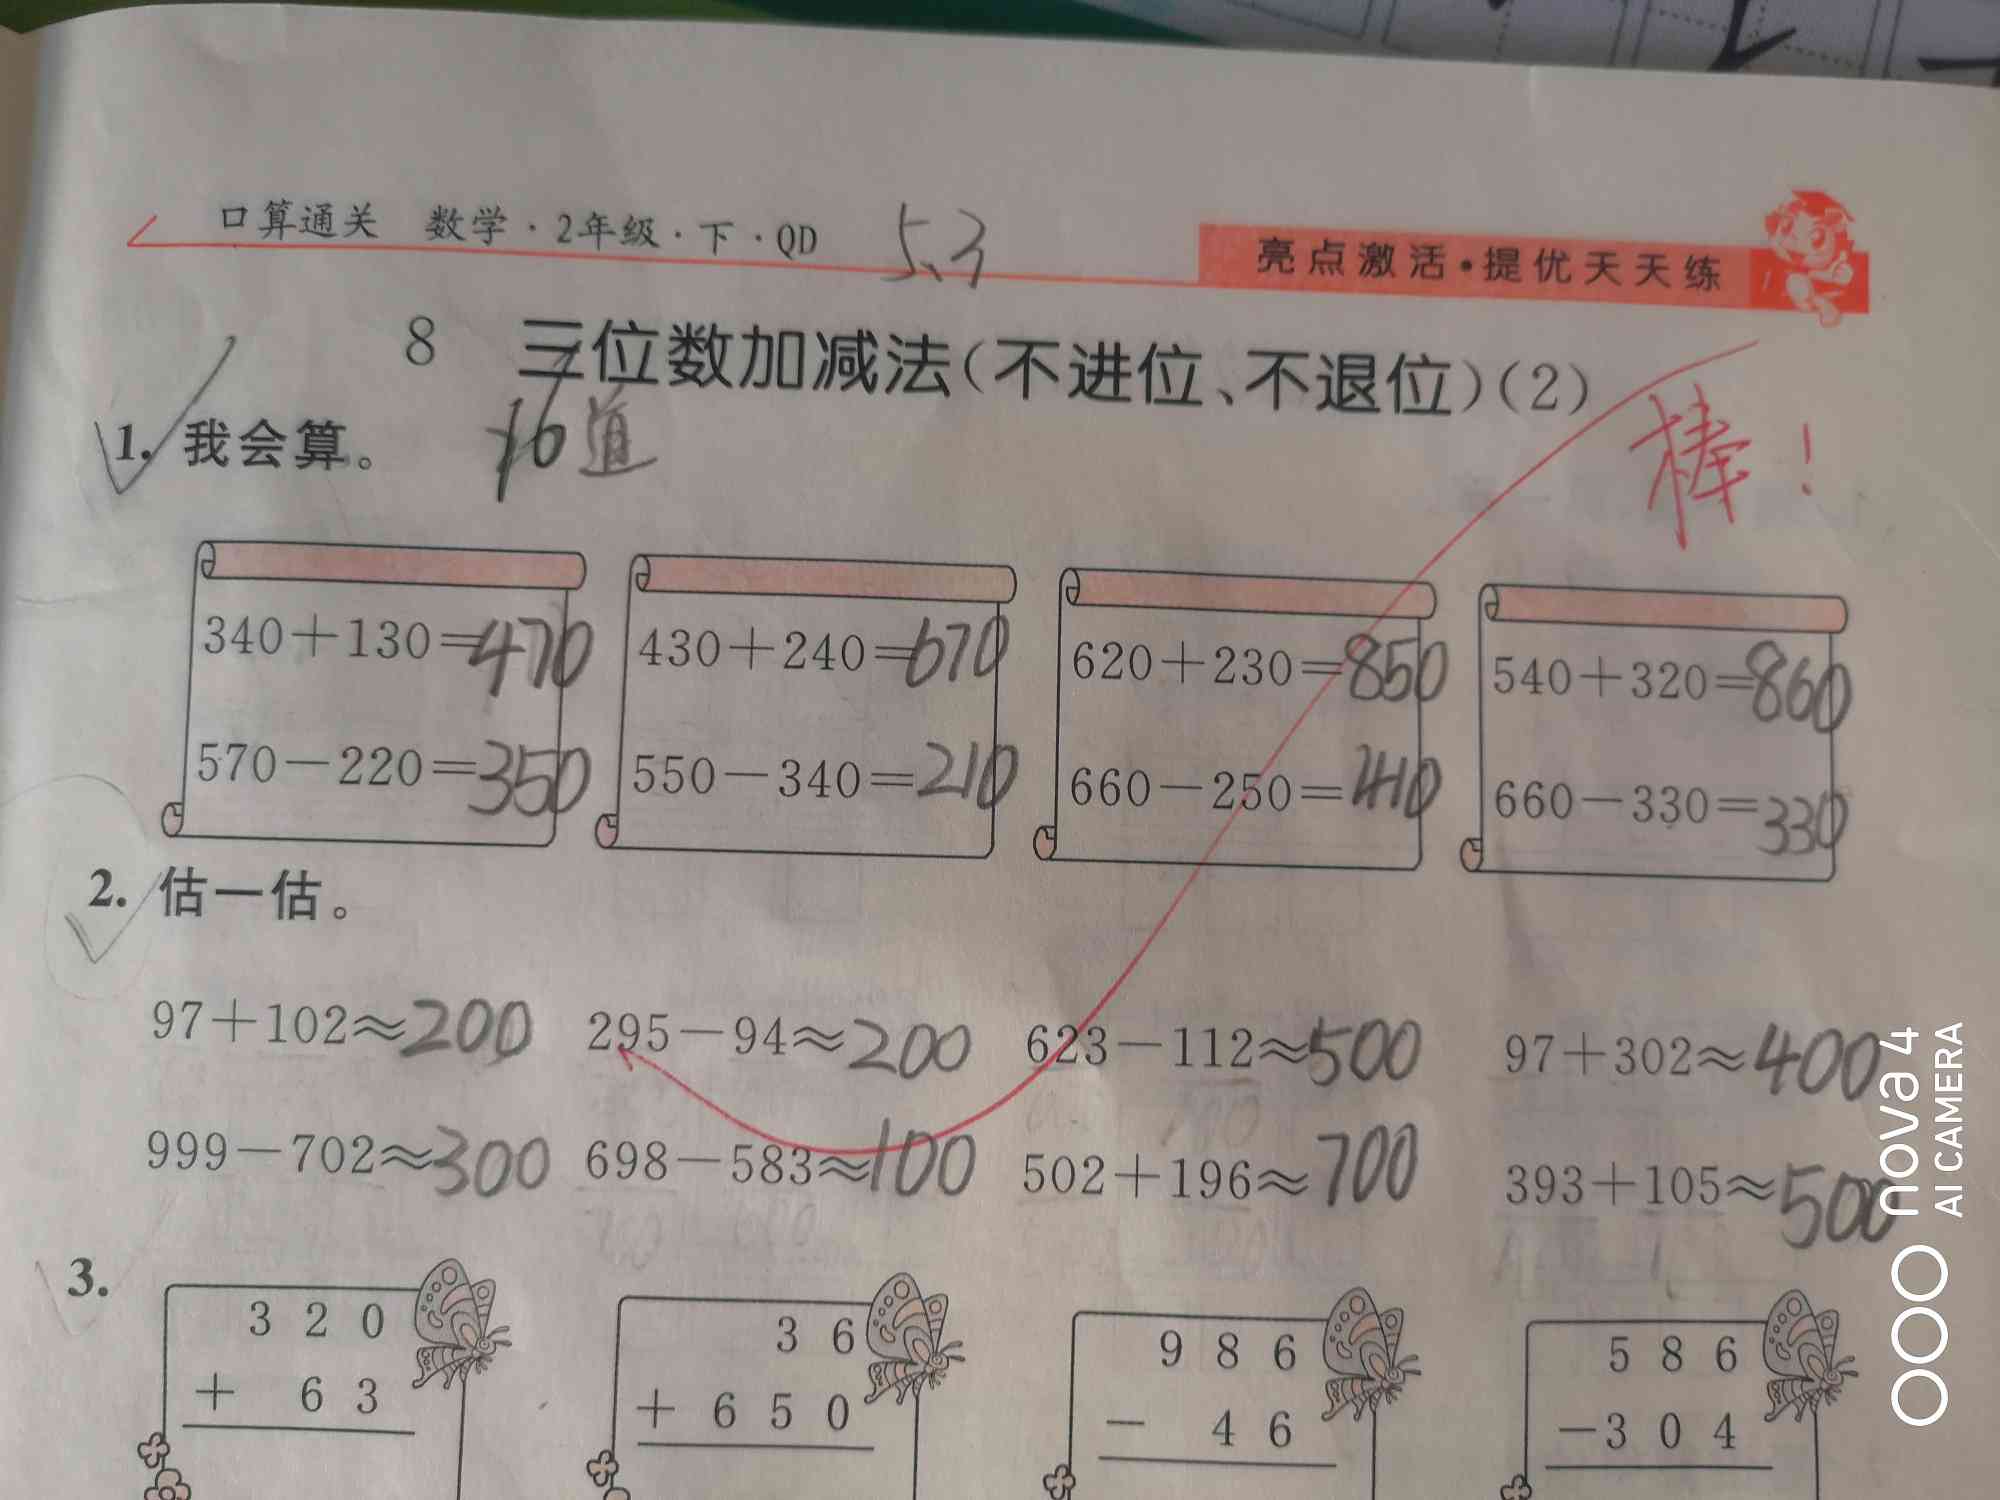 口算通关 数学·2年级·下·QD 5.3 亮点激活·提优天天练
8 三位数加减法(不进位、不退位)(2)
棒!
1. 我会算。 16道
340+130=470 430+240=670 620+230=850 540+320=860
570-220=350 550-340=210 660-250=410 660-330=330
2. 估一估。
97+102≈200 295-94≈200 623-112≈500 97+302≈400
999-702≈300 698-583≈100 502+196≈700 393+105≈500
3.
320 36 986 586
+ 63 +650 - 46 -304
nova 4
AI CAMERA